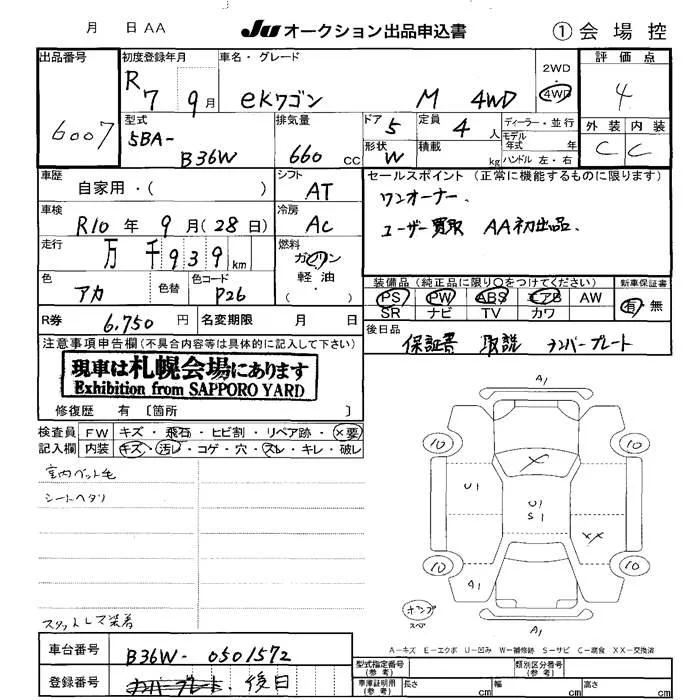 月 日 AA JU オークション出品申込書 ① 会場控
出品番号 初度登録年月 車名・グレード 2WD 4WD 評価点
6007 R 7 9月 eKワゴン M 4WD 4
型式 排気量 ドア 5 定員 4 人 ディーラー・並行 外装 内装
5BA- B36W 660 cc 形状 W 積載 kg モデル年式 年 ハンドル 左・右 C C
車歴 自家用・( ) シフト AT セールスポイント (正常に機能するものに限ります)
車検 R10 年 9 月 (28 日) 冷房 AC ワンオーナー.
走行 万 千 939 km 燃料 ガソリン・軽油・( ) ユーザー買取 AA初出品.
色 アカ 色替 色コード P26 装備品 (純正品に限り○をつけてください) 新車保証書
PS PW ABS エアB AW 有・無
SR ナビ TV カワ
R券 6,750 円 名変期限 月 日 後日品
保証書 取説 ナンバープレート
注意事項申告欄(不具合内容等は具体的に記入して下さい)
現車は札幌会場にあります
Exhibition from SAPPORO YARD
修復歴 有 〔箇所 〕
検査員 FW キズ・飛石・ヒビ割・リペア跡・×要
記入欄 内装 キズ・汚レ・コゲ・穴・スレ・キレ・破レ
室内ペット毛
シートヘタリ
スタットレス装着
A1
10 10
×
U1 U1 S1 ××
10 10
A1
ポンプ スペア
A1
A-キズ E-エクボ U-凹み W-補修跡 S-サビ C-腐食 XX-交換済
車台番号 B36W-0501572 型式指定番号(参考) 類別区分番号(参考)
登録番号 ナンバープレート、後日 車庫証明用(参考) 長さ cm 幅 cm 高さ cm